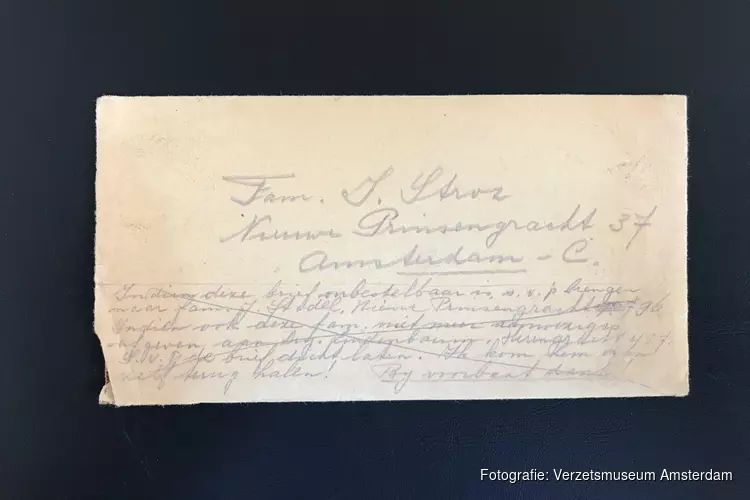 Fam. S. Stroz
Nieuwe Prinsengracht 37
Amsterdam - C.
Indien deze brief onbestelbaar is, s.v.p brengen
naar Family Stodel, Nieuwe Prinsengracht 96
Indien ook deze fam. niet meer aanwezig
afgeven aan
S.v.p. de brief dicht laten. Ik kom hem
zelf terug halen! By voorbaat dank
Fotografie: Verzetsmuseum Amsterdam